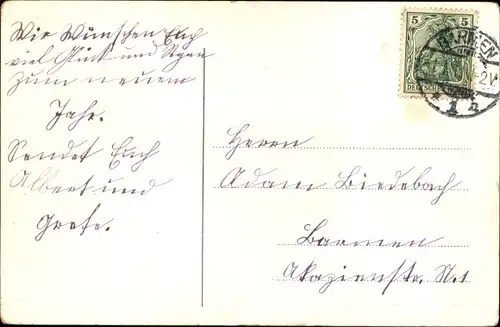 Wir Wünschen Euch
viel Glück und Segen
zum neuem
Jahr.
Sendet Euch
Albert und
Grete.
5 5
DEUTSCHES REICH
BARMEN
1 n
Herrn
Adam Biedebach
Barmen
Akazienstr. No 1